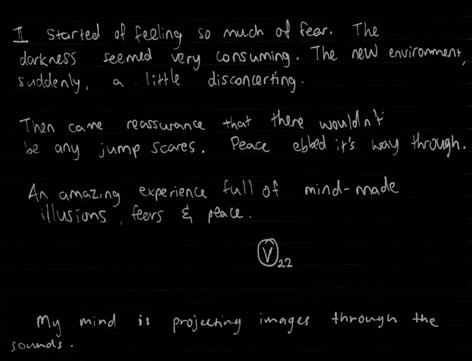 II Started of feeling so much of fear. The
darkness seemed very consuming. The new environment,
suddenly, a little disconcerting.
Then came reassurance that there wouldn't
be any jump scares. Peace ebbed it's way through.
An amazing experience full of mind-made
illusions, fears & peace.
V 22
My mind is projecting images through the
sounds.